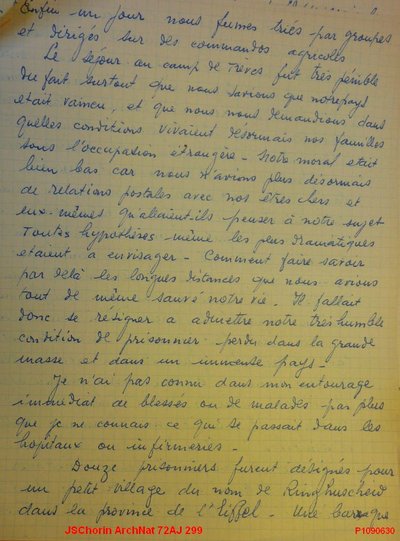 Enfin un jour nous fumes triés par groupes
et dirigés sur des commandos agricoles
Le séjour au camp de Trèves fut très pénible
du fait surtout que nous savions que notre pays
etait vaincu, et que nous nous demandions dans
quelles conditions vivaient desormais nos familles
sous l'occupation étrangère - Notre moral etait
bien bas car nous n'avions plus désormais
de relations postales avec nos êtres chers et
eux-mêmes qu'allaient-ils penser à notre sujet
Toutes hypothèses même les plus dramatiques
etaient a envisager - Comment faire savoir
par delà les longues distances que nous avions
tout de même sauvé notre vie - Il fallait
donc se resigner a admettre notre très humble
condition de prisonnier perdu dans la grande
masse et dans un immense pays -
Je n'ai pas connu dans mon entourage
immédiat de blessés ou de malades pas plus
que je ne connais ce qui se passait dans les
hopitaux ou infirmeries -
Douze prisonniers furent désignés pour
un petit village du nom de Ringhuscheid
dans la province de l'Eiffel - Une baraque
JSChorin ArchNat 72AJ 299
P1090630